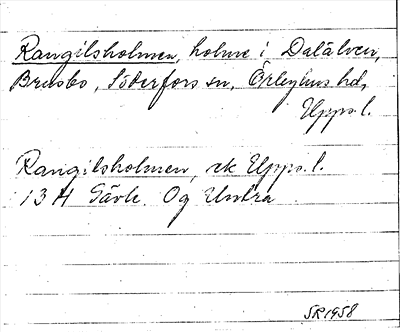 Rangilsholmen, holme i Dalälven,
Brusbo, Söderfors sn, Örbyhus hd,
Upps. l.
Rangilsholmen, ek Upps. l.
13 H Gävle. Og Untra
SR 1958